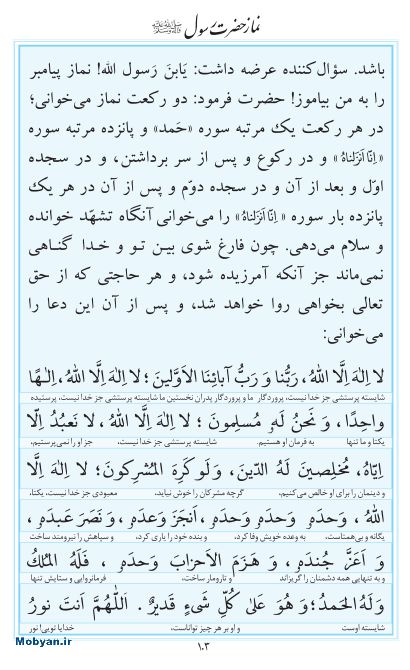 نماز حضرت رسول ﷺ
باشد. سؤال‌کننده عرضه داشت: یَابنَ رَسول الله! نماز پیامبر
را به من بیاموز! حضرت فرمود: دو رکعت نماز می‌خوانی؛
در هر رکعت یک مرتبه سوره «حَمد» و پانزده مرتبه سوره
«اِنّا اَنزَلناهُ» و در رکوع و پس از سر برداشتن، و در سجده
اوّل و بعد از آن و در سجده دوّم و پس از آن در هر یک
پانزده بار سوره «اِنّا اَنزَلناهُ» را می‌خوانی آنگاه تشهّد خوانده
و سلام می‌دهی. چون فارغ شوی بین تو و خدا گناهی
نمی‌ماند جز آنکه آمرزیده شود، و هر حاجتی که از حق
تعالی بخواهی روا خواهد شد، و پس از آن این دعا را
می‌خوانی:
لا اِلٰهَ اِلَّا اللهُ، رَبُّنا وَ رَبُّ آبائِنَا الاَوَّلینَ؛ لا اِلٰهَ اِلَّا اللهُ، اِلـٰهًا
شایسته پرستشی جز خدا نیست، پروردگار ما و پروردگار پدران نخستین ما شایسته پرستشی جز خدا نیست، پرستیده
واحِدًا، وَ نَحنُ لَهُ مُسلِمونَ؛ لا اِلٰهَ اِلَّا اللهُ، لا نَعبُدُ اِلّا
یکتا و ما تنها به فرمان او هستیم. شایسته پرستشی جز خدا نیست، جز او را نمی‌پرستیم،
اِیّاهُ، مُخلِصینَ لَهُ الدّینَ، وَ لَو کَرِهَ المُشرِکونَ؛ لا اِلٰهَ اِلَّا
و دینمان را برای او خالص می‌کنیم، گرچه مشرکان را خوش نیاید، معبودی جز خدا نیست، یکتا،
اللهُ، وَحدَهُ وَحدَهُ وَحدَهُ، اَنجَزَ وَعدَهُ، وَ نَصَرَ عَبدَهُ،
یگانه و بی‌همتاست، به وعده خویش وفا کرد، و بنده خود را یاری کرد، و سپاهش را نیرومند ساخت
وَ اَعَزَّ جُندَهُ، وَ هَزَمَ الاَحزابَ وَحدَهُ، فَلَهُ المُلكُ
و به تنهایی همه دشمنان را گریزاند و تارومار ساخت، فرمانروایی و ستایش تنها
وَ لَهُ الحَمدُ؛ وَ هُوَ عَلیٰ کُلِّ شَیءٍ قَدیرٌ. اَللّٰهُمَّ اَنتَ نورُ
شایسته اوست و او بر هر چیز تواناست، خدایا تویی! نور
۱۰۳
Mobyan.ir